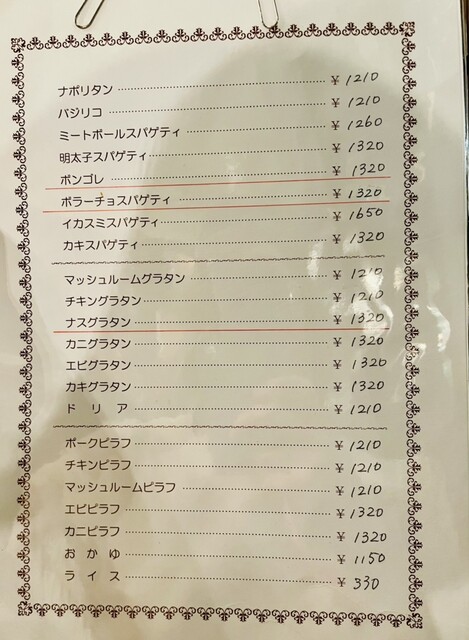 ナポリタン ¥1210
バジリコ ¥1210
ミートボールスパゲティ ¥1260
明太子スパゲティ ¥1320
ボンゴレ ¥1320
ボラーチョスパゲティ ¥1320
イカスミスパゲティ ¥1650
カキスパゲティ ¥1320
マッシュルームグラタン ¥1210
チキングラタン ¥1210
ナスグラタン ¥1320
カニグラタン ¥1320
エビグラタン ¥1320
カキグラタン ¥1320
ドリア ¥1210
ポークピラフ ¥1210
チキンピラフ ¥1210
マッシュルームピラフ ¥1210
エビピラフ ¥1320
カニピラフ ¥1320
おかゆ ¥1150
ライス ¥330